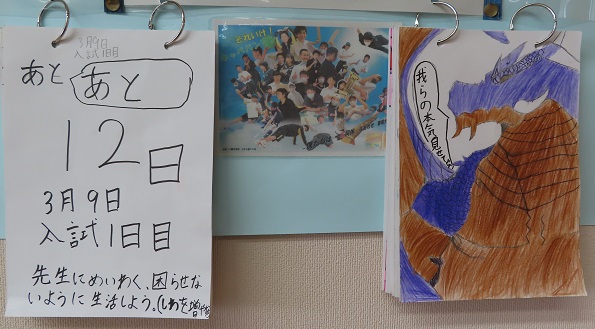 3月9日
入試1日目
あと
あと
12日
3月9日
入試1日目
先生にめいわく、困らせな
いように生活しよう。(しわを増やす
それいけ!
我らの本気見せ